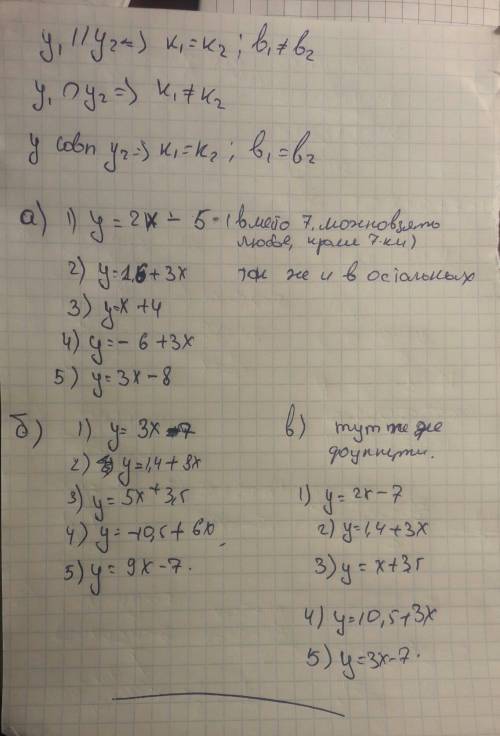 y₁ // y₂ => k₁ = k₂ ; b₁ ≠ b₂
y₁ ∩ y₂ => k₁ ≠ k₂
y совп y₂ => k₁ = k₂ ; b₁ = b₂
а) 1) y = 2x - 5 - (вместо 7, можно взять
любое, кроме 7-ки)
2) y = 1,6 + 3x так же и в остальных
3) y = x + 4
4) y = - 6 + 3x
5) y = 3x - 8
б) 1) y = 3x - 7
2) y = 1,4 + 8x
3) y = 5x + 3,5
4) y = -10,5 + 6x
5) y = 9x - 7.
в) тут же
1) y = 2x - 7
2) y = 1,4 + 3x
3) y = x + 3,5
4) y = 10,5 + 3x
5) y = 3x - 7.